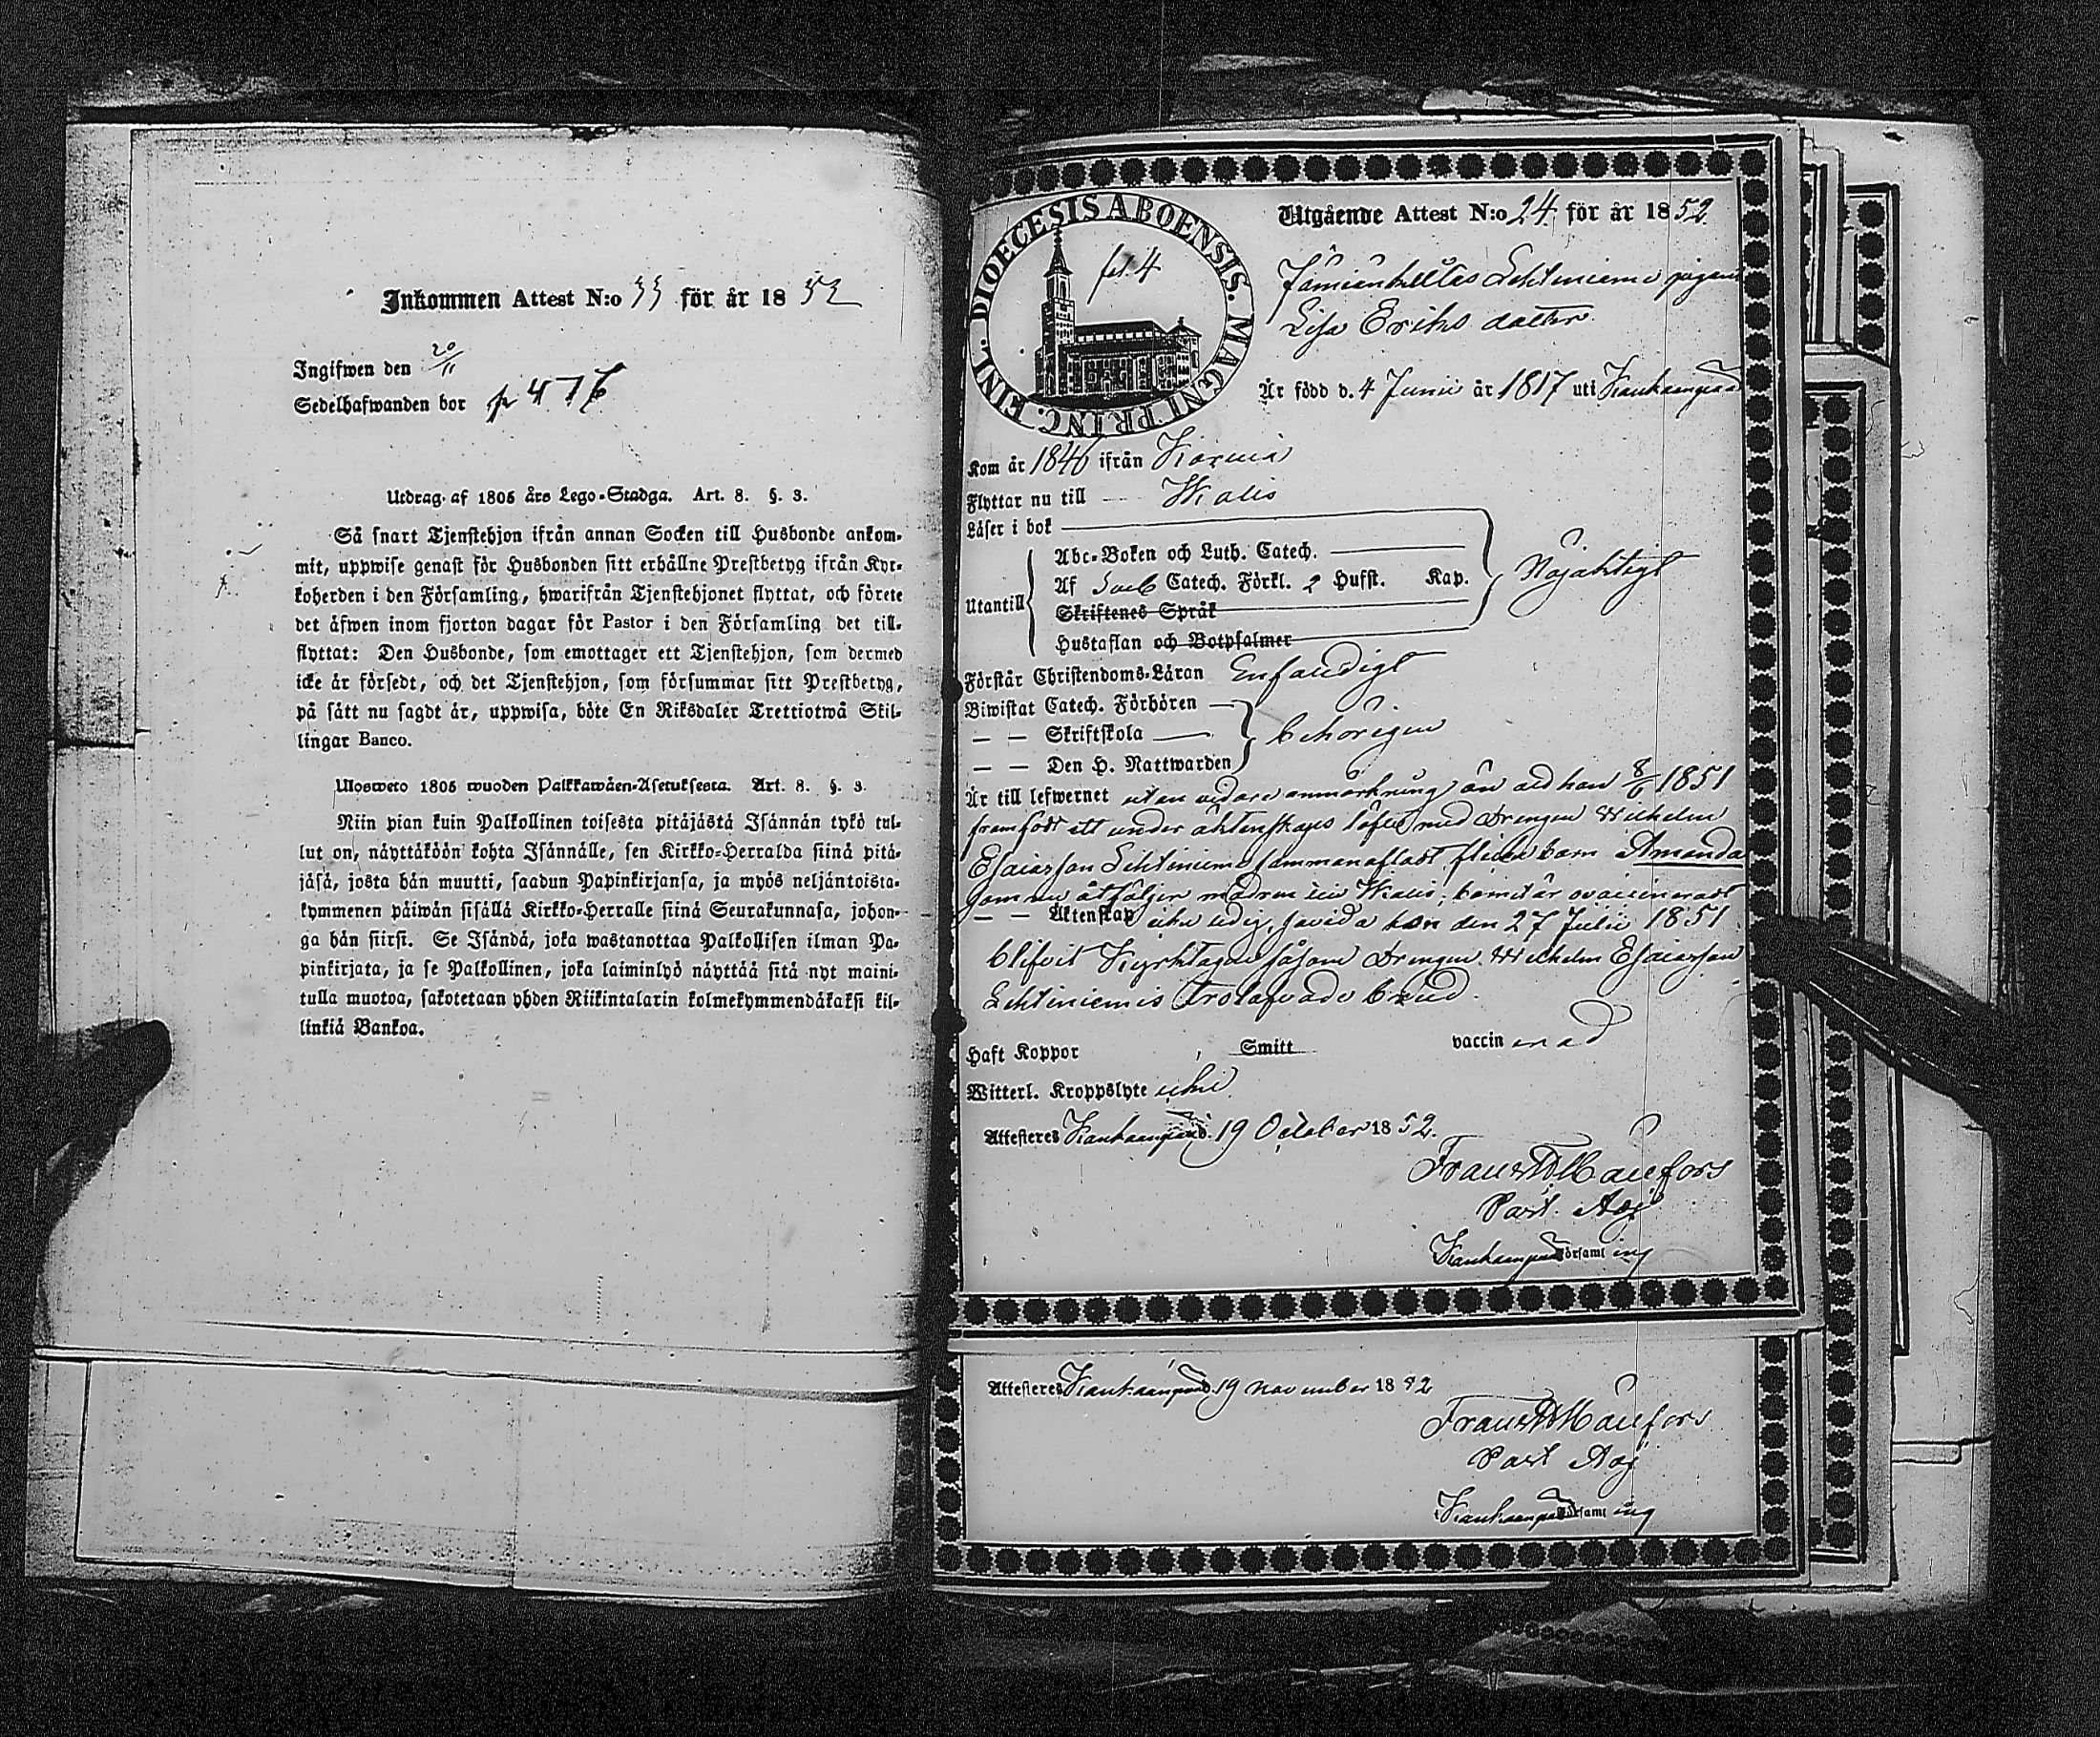 Inkommen Attest N:o 33 för år 1852
Ingifwen den 20/11
Sedelhafwanden bor p 476
Utdrag af 1805 års Lego-Stadga. Art. 8. §. 3.
Så snart Tjenstehjon ifrån annan Socken till Husbonde ankom-
mit, uppwise genast för Husbonden sitt erhållne Prestbetyg ifrån Kyr-
koherden i den Församling, hwarifrån Tjenstehjonet flyttat, och förete
det äfwen inom fjorton dagar för Pastor i den Församling det till-
flyttat: Den Husbonde, som emottager ett Tjenstehjon, som dermed
icke är försedt, och det Tjenstehjon, som försummar sitt Prestbetyg,
på sätt nu sagdt är, uppwisa, böte En Riksdaler Trettiotwå Skil-
lingar Banco.
Ulosweto 1805 wuoden Palkkawäen-Asetuksesta. Art. 8. §. 3.
Niin pian kuin Palkollinen toisesta pitäjästä Isännän tykö tul-
lut on, näyttäköön kohta Isännälle, sen Kirkko-Herralda siinä pitä-
jäsä, josta hän muutti, saadun Papinkirjansa, ja myös neljäntoista-
kymmenen päiwän sisällä Kirkko-Herralle siinä Seurakunnasa, johon-
ga hän siirsi. Se Isändä, joka wastanottaa Palkollisen ilman Pa-
pinkirjata, ja se Palkollinen, joka laiminlyö näyttää sitä nyt maini-
tulla muotoa, sakotetaan yhden Riikintalarin kolmekymmendäkaksi kil-
linkiä Bankoa.
DIOECESIS ABOENSIS. MAGNI PRINC. FINL.
fol. 4
Utgående Attest N:o 24 för år 1852.
Lehtiniemi pigan
Lisa Eriks dotter
Är född d. 4 Junii år 1817 uti Kankaanpää
Kom år 1846 ifrån Karvia
Flyttar nu till Ikalis
Läser i bok
Utantill
Abc-Boken och Luth. Catech.
Af Sveb Catech. Förkl. 2 Hufst. Kap.
Skriftenes Språk
Hustaflan och Botpsalmer
Nöjaktigt
Förstår Christendoms-Läran Enfaldigt
Biwistat Catech. Förhören
— — Skriftskola
— — Den H. Nattwarden
behörigen
Är till lefwernet utan vidare anmärkning än att hon 8/6 1851
framfödt ett under äktenskaps löfte med Drengen Wilhelm
Esaiasson Lehtiniemi sammanaflat flicko barn Amanda
som nu åtföljer modren till Ikalis; barnet är ovaccineradt
— — Äktenskap icke ledig, savida hon den 27 Julii 1851
blifvit Kyrktagen såsom Drengen Wilhelm Esaiasson
Lehtiniemis trolofvade brud.
Haft Koppor , Smitt vaccinerad
Witterl. Kroppslyte icke
Attesteres Kankaanpää d. 19 October 1852.
Past. Adj
Kankaanpää Församling
Attesteres Kankaanpää d. 19 november 1852
Past Adj
Kankaanpää Församling